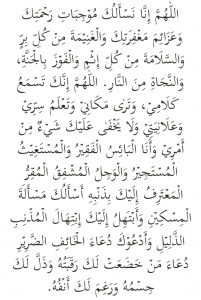 اللَّهُمَّ إِنَّا نَسْأَلُكَ مُوْجِبَاتِ رَحْمَتِكَ
وَعَزَائِمَ مَغْفِرَتِكَ وَالْغَنِيْمَةَ مِنْ كُلِّ بِرٍّ
وَالسَّلَامَةَ مِنْ كُلِّ إِثْمٍ وَالْفَوْزَ بِالْجَنَّةِ،
وَالنَّجَاةَ مِنَ النَّارِ. اللَّهُمَّ إِنَّكَ تَسْمَعُ
كَلَامِيْ، وَتَرَى مَكَانِيْ وَتَعْلَمُ سِرِّيْ
وَعَلَانِيَتِيْ وَلَا يَخْفَى عَلَيْكَ شَيْءٌ مِنْ
أَمْرِيْ وَأَنَا الْبَائِسُ الْفَقِيْرُ وَالْمُسْتَغِيْثُ
الْمُسْتَجِيْرُ وَالْوَجِلُ الْمُشْفِقُ الْمُقِرُّ
الْمُعْتَرِفُ إِلَيْكَ بِذَنْبِهِ أَسْأَلُكَ مَسْأَلَةَ
الْمِسْكِيْنِ وَأَبْتَهِلُ إِلَيْكَ إِبْتِهَالَ الْمُذْنِبِ
الذَّلِيْلِ وَأَدْعُوْكَ دُعَاءَ الْخَائِفِ الضَّرِيْرِ
دُعَاءَ مَنْ خَضَعَتْ لَكَ رَقَبَتُهُ وَذَلَّ لَكَ
جِسْمُهُ وَرَغِمَ لَكَ أَنْفُهُ.